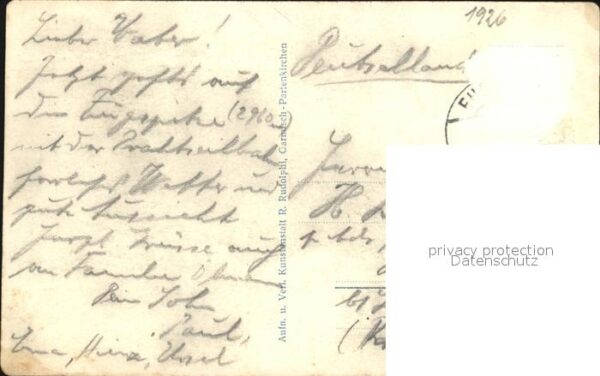 1926
Lieber Vater!
Jetzt gehts auf
die Zugspitze (2960 m)
mit der Drahtseilbahn
herrliches Wetter und
gute Aussicht
Herzl. Grüsse auch
an Familie
Dein Sohn
Paul,
Aufn. u. Verl. Kunstanstalt R. Rudolphi, Garmisch-Partenkirchen
Deutschland
Herrn
H.
privacy protection
Datenschutz